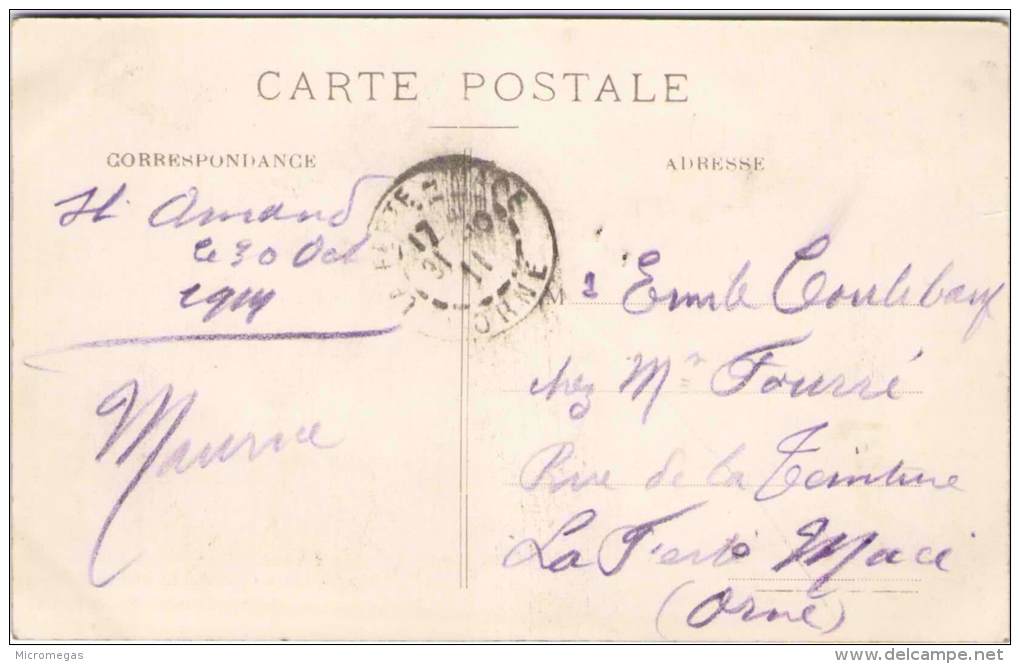 CARTE POSTALE
CORRESPONDANCE
St Amand
le 30 Oct
1911
Maurice
LA FERTE-MACE
17
31 10
11
ORNE
ADRESSE
M Emile
chez Mr Fourré
Rue de la Teinture
La Ferté Macé
(Orne)
Micromegas
www.delcampe.net